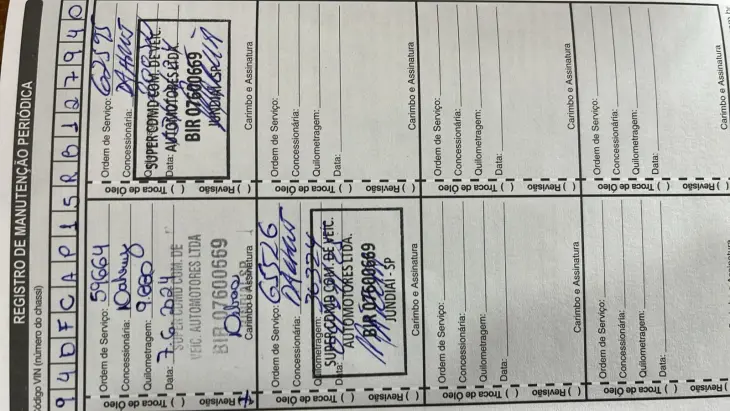 REGISTRO DE MANUTENÇÃO PERIÓDICA
Código VIN (número do chassi)
94DFCAP15RB127940
Revisão ( ) Troca de Óleo ( )
Ordem de Serviço: 59664
Concessionária:
Quilometragem: 9.880
Data: 7.6.2024
SUPER COMD COM. DE
VEIC. AUTOMOTORES LTDA
BIR 07600669
JUNDIAI-SP
Carimbo e Assinatura
Revisão ( ) Troca de Óleo ( )
Ordem de Serviço: 62595
Concessionária: DAHRUJ
Quilometragem:
Data:
SUPER COMD COM. DE VEIC.
AUTOMOTORES LTDA.
BIR 07600669
JUNDIAÍ-SP
Carimbo e Assinatura
Revisão ( ) Troca de Óleo ( )
Ordem de Serviço: 65526
Concessionária: DAHRUJ
Quilometragem: 30324
Data:
SUPER COMD COM. DE VEIC.
AUTOMOTORES LTDA.
BIR 07600669
JUNDIAÍ-SP
Carimbo e Assinatura
Revisão ( ) Troca de Óleo ( )
Ordem de Serviço:
Concessionária:
Quilometragem:
Data:
Carimbo e Assinatura
Revisão ( ) Troca de Óleo ( )
Ordem de Serviço:
Concessionária:
Quilometragem:
Data:
Carimbo e Assinatura
Revisão ( ) Troca de Óleo ( )
Ordem de Serviço:
Concessionária:
Quilometragem:
Data:
Carimbo e Assinatura
Revisão ( ) Troca de Óleo ( )
Ordem de Serviço:
Concessionária:
Quilometragem:
Data:
Carimbo e Assinatura
Revisão ( ) Troca de Óleo ( )
Ordem de Serviço:
Concessionária:
Quilometragem:
Data:
Carimbo e Assinatura